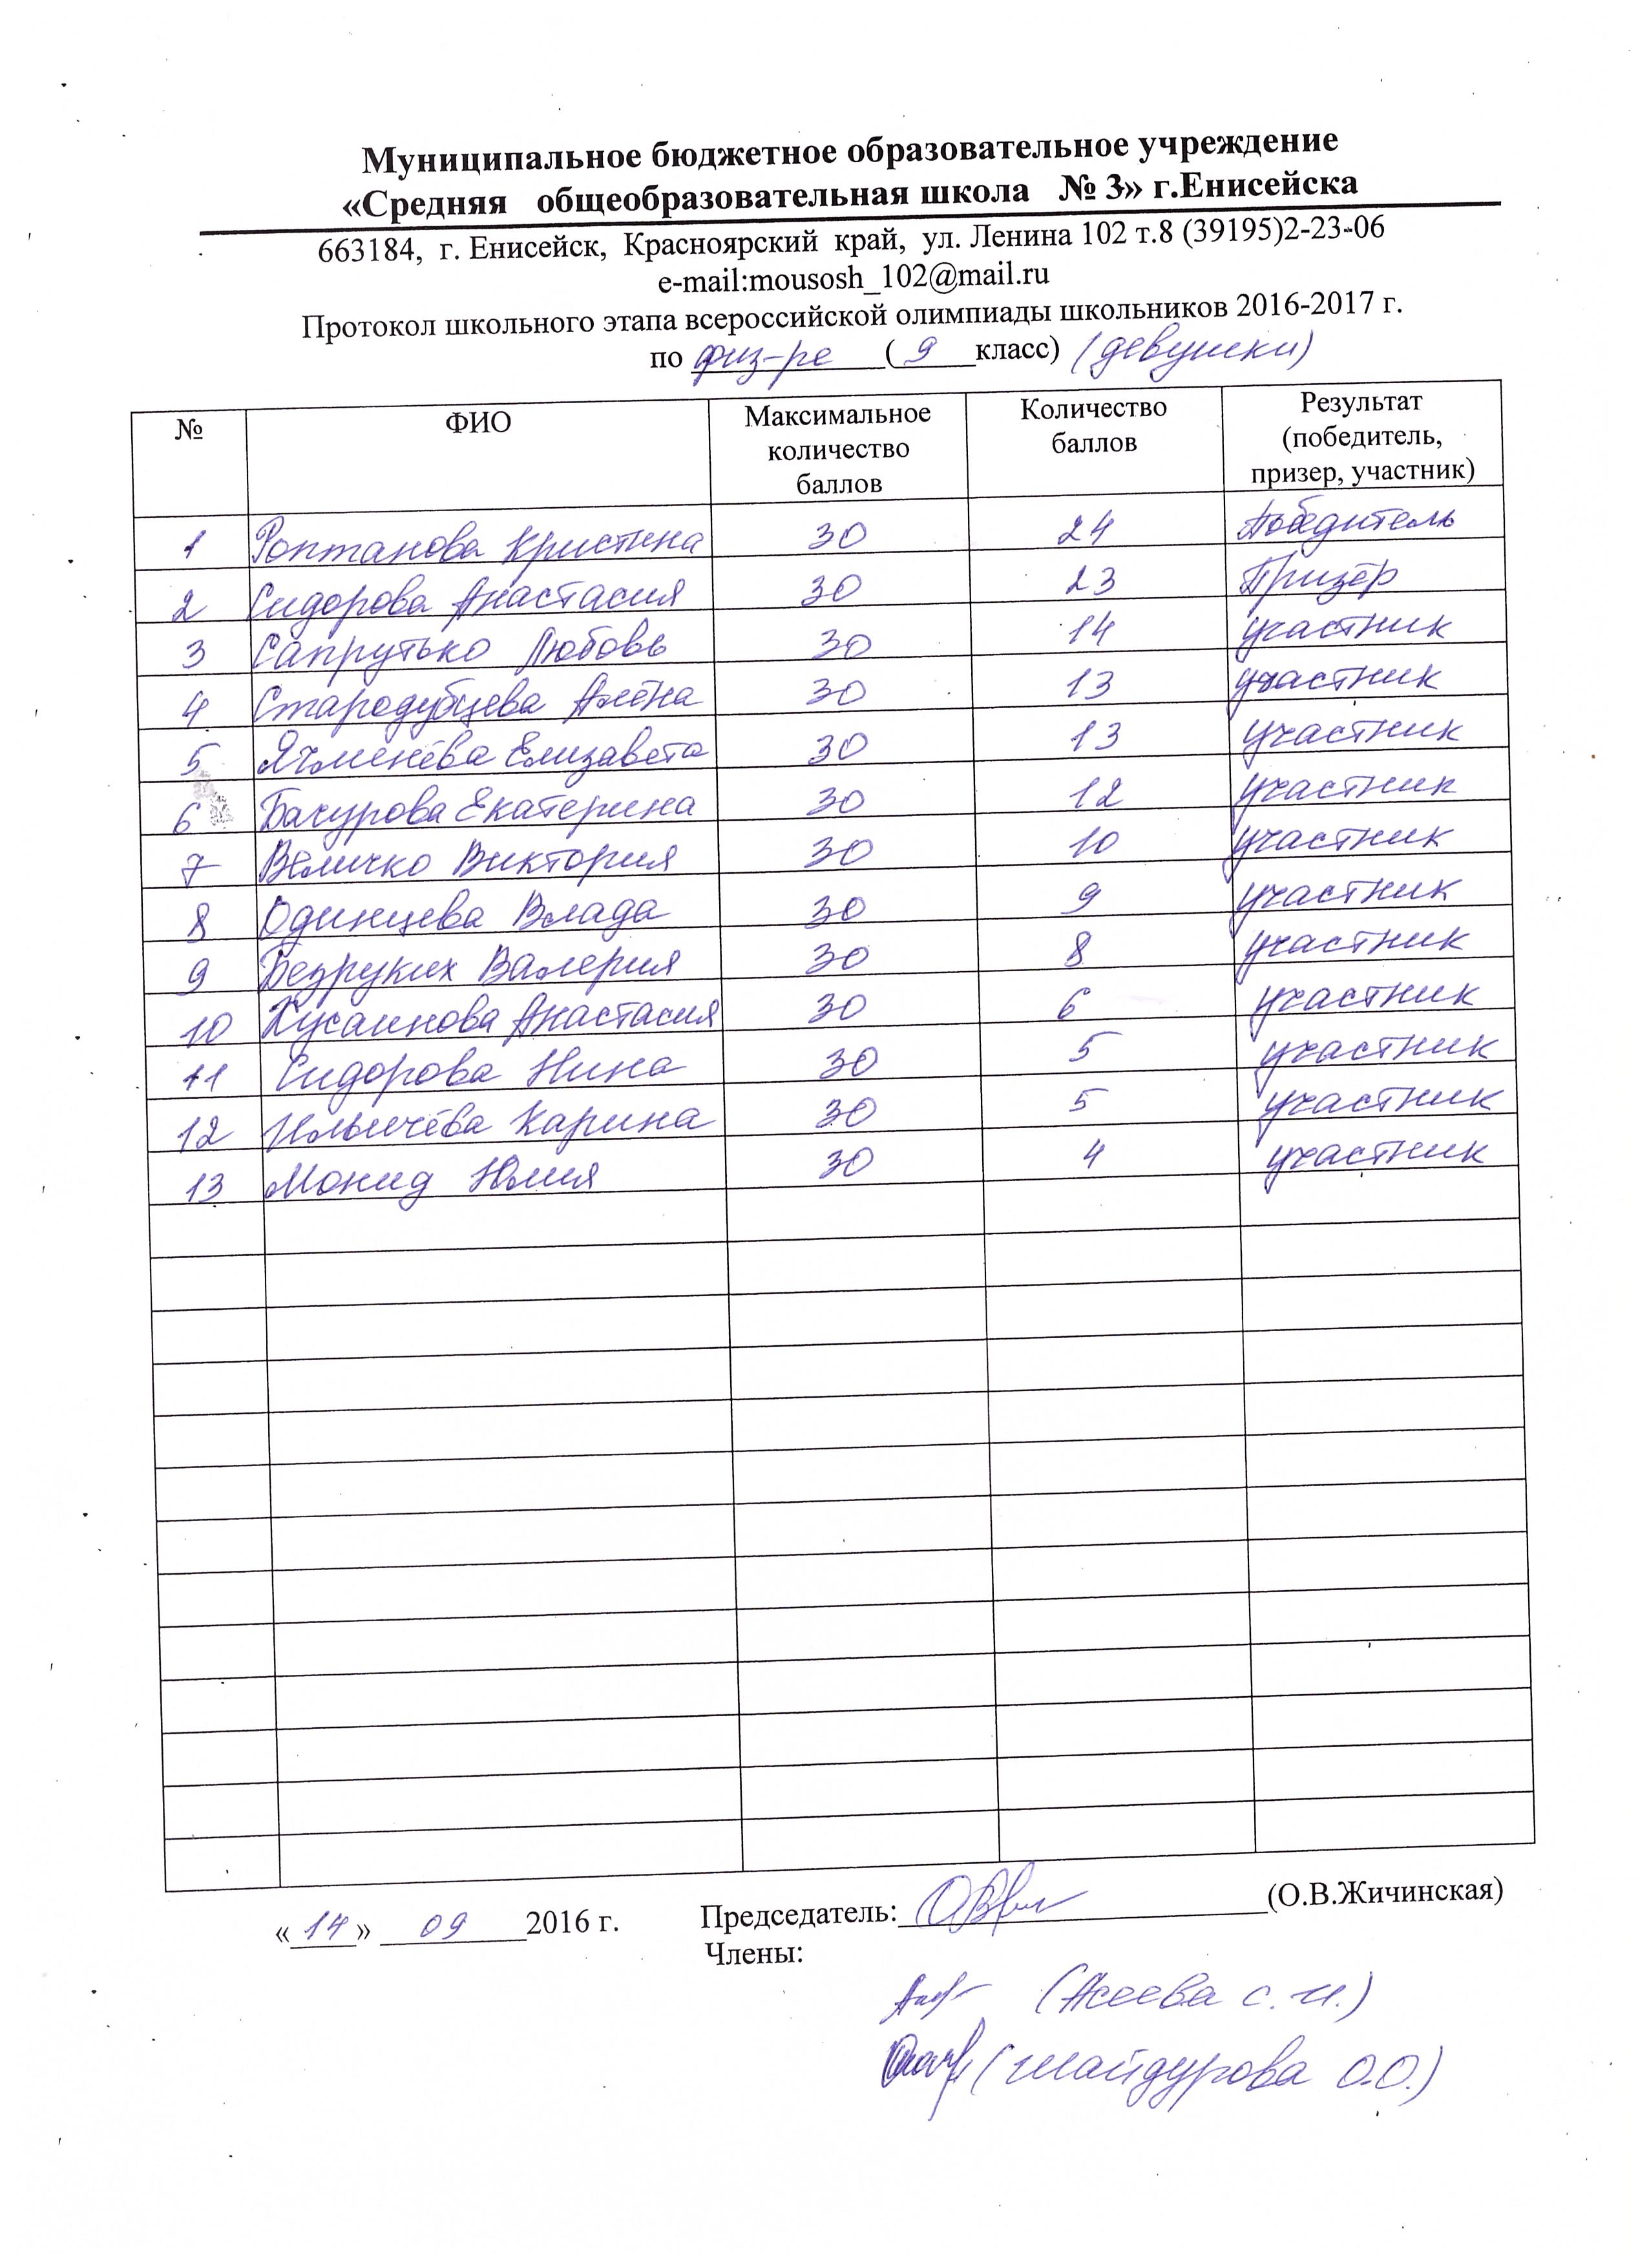 Муниципальное бюджетное образовательное учреждение
«Средняя общеобразовательная школа № 3» г.Енисейска
663184, г. Енисейск, Красноярский край, ул. Ленина 102 т.8 (39195)2-23-06
e-mail:mousosh_102@mail.ru
Протокол школьного этапа всероссийской олимпиады школьников 2016-2017 г.
по физ-ре (9 класс) (девушки)
№ ФИО Максимальное количество баллов Количество баллов Результат (победитель, призер, участник)
1 Роптанова Кристина 30 24 Победитель
2 Сидорова Анастасия 30 23 Призёр
3 Сапрутько Любовь 30 14 участник
4 Стародубцева Алёна 30 13 участник
5 Ячменёва Елизавета 30 13 участник
6 Бачурова Екатерина 30 12 участник
7 Величко Виктория 30 10 участник
8 Одинцева Влада 30 9 участник
9 Безруких Валерия 30 8 участник
10 Хусаинова Анастасия 30 6 участник
11 Сидорова Нина 30 5 участник
12 Ильичёва Карина 30 5 участник
13 Монид Юлия 30 4 участник
«14» 09 2016 г. Председатель: (О.В.Жичинская)
Члены:
(Асеева С.И.)
(Шайдурова О.О.)